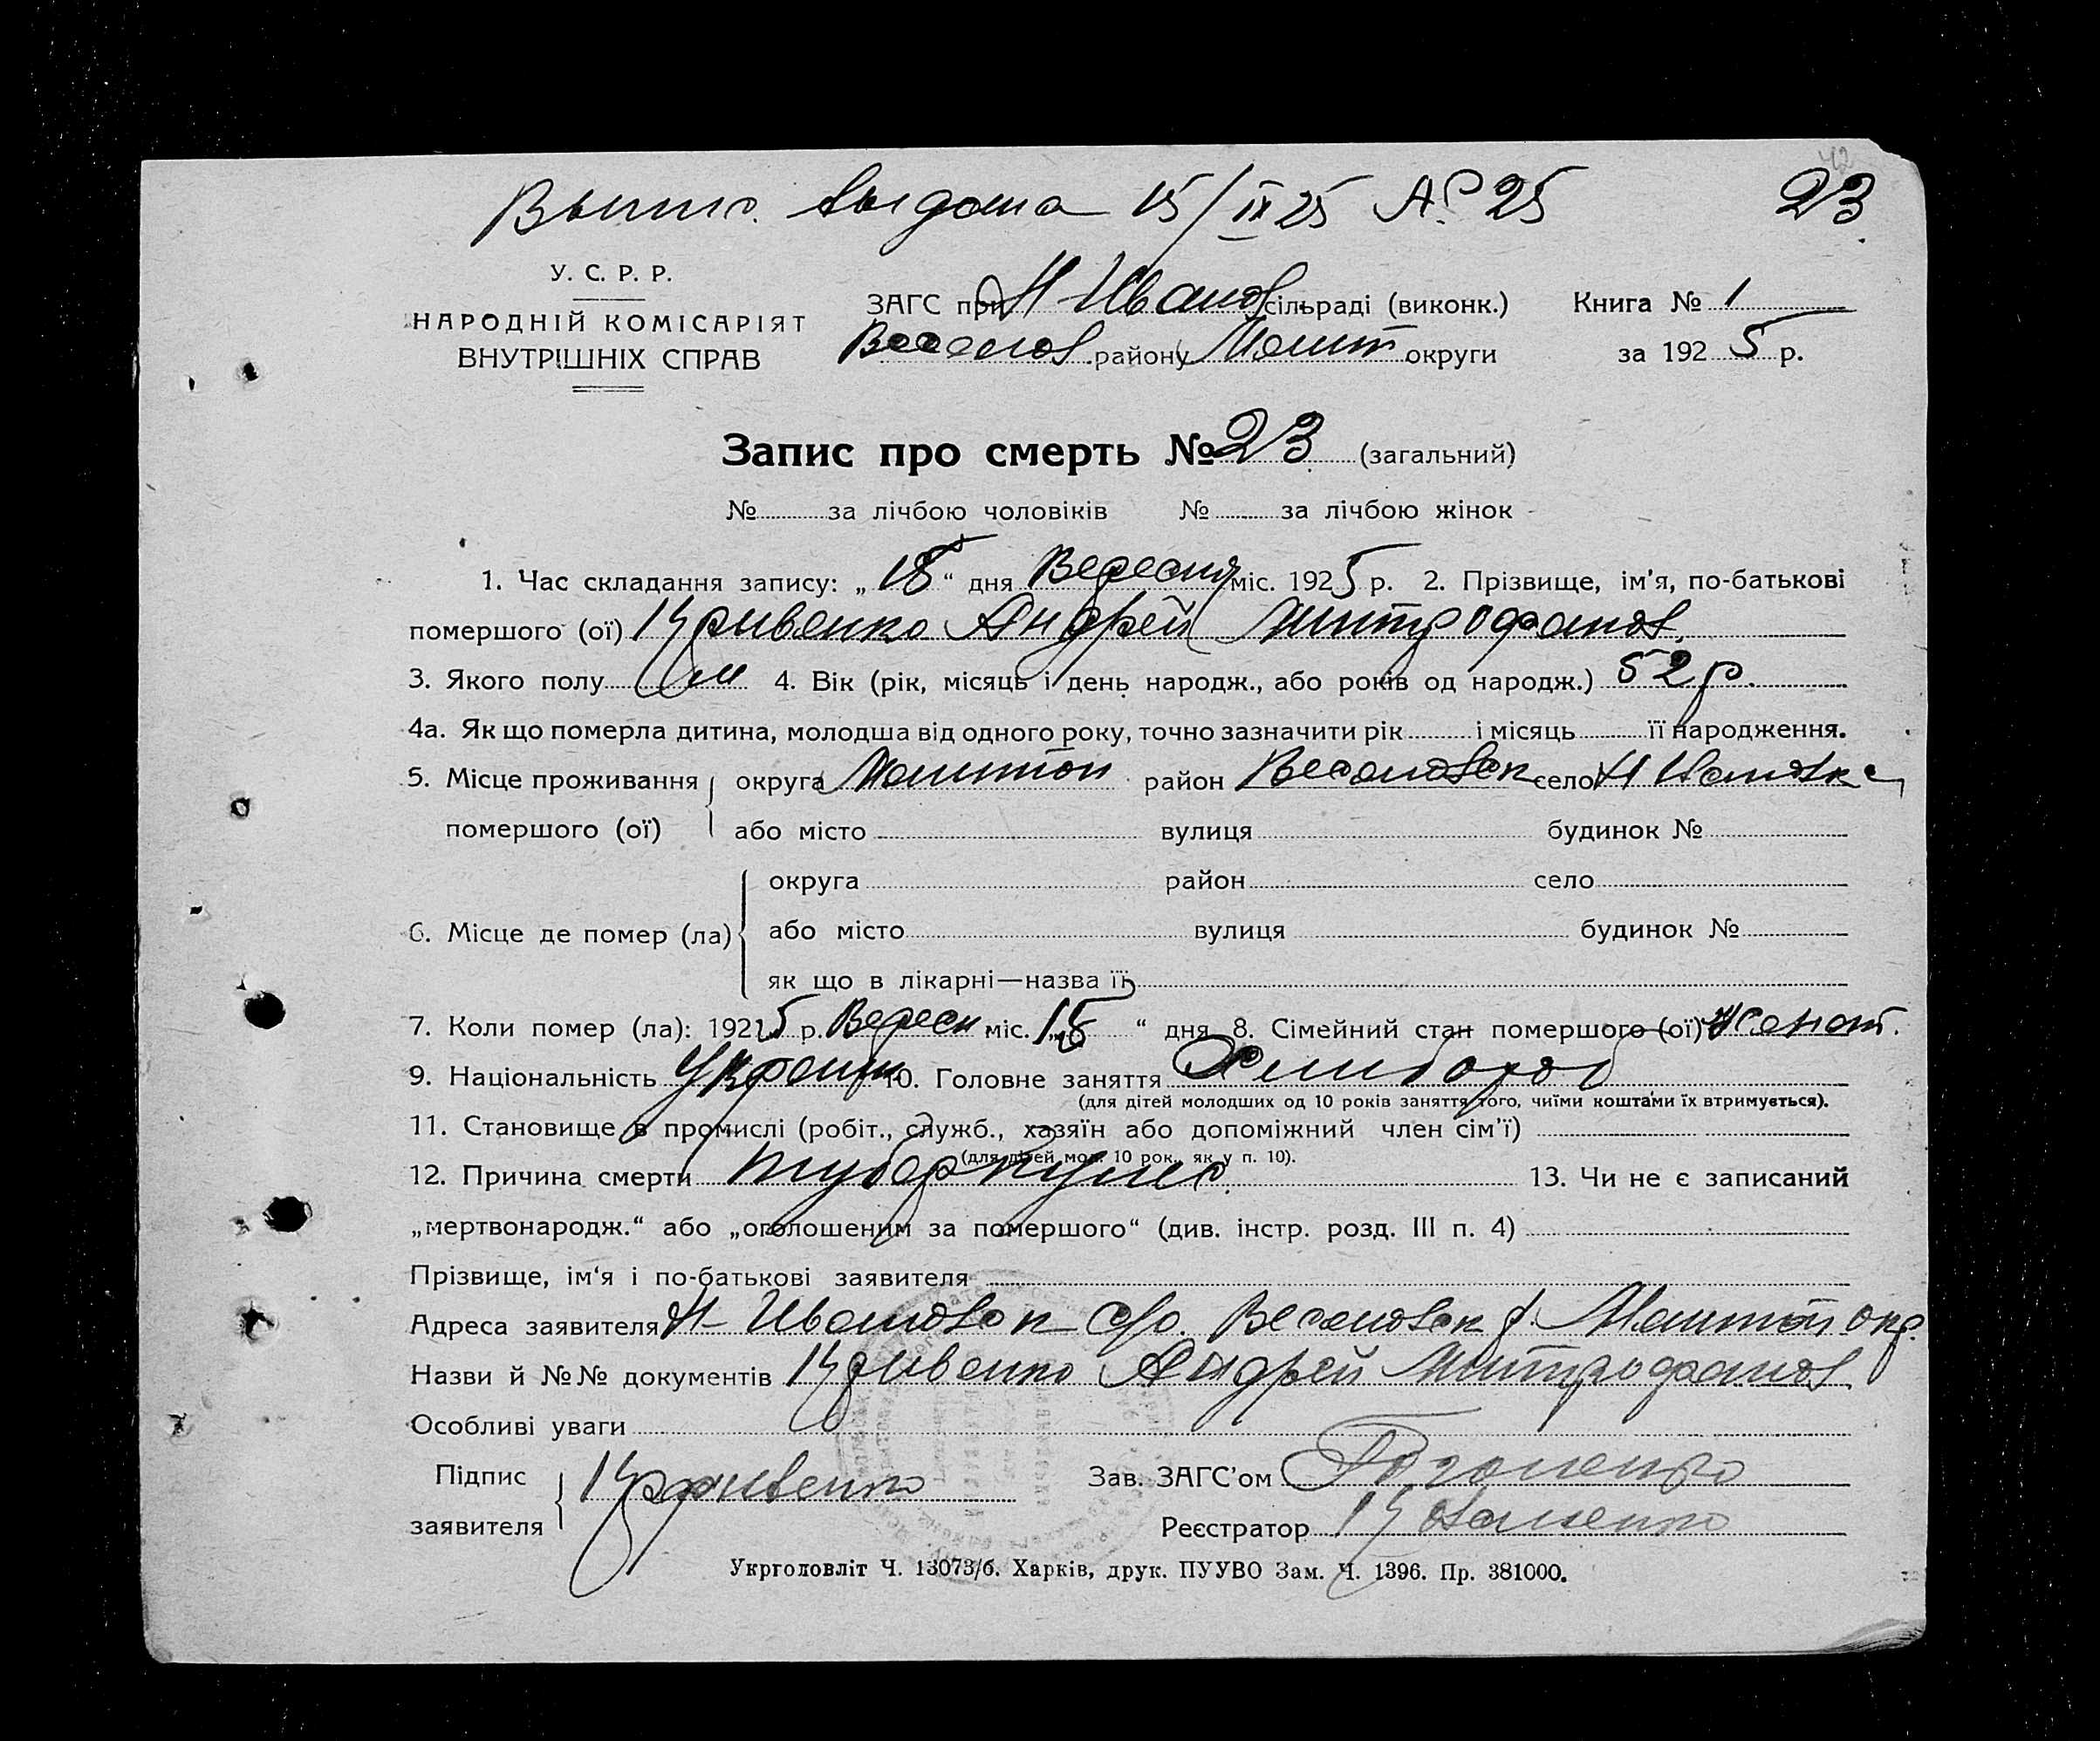 Выпис. выдана 15/IX 25 № 25 23
У. С. Р. Р.
НАРОДНІЙ КОМІСАРІЯТ
ВНУТРІШНІХ СПРАВ
ЗАГС при Н Иванов сільраді (виконк.) Книга № 1
району округи за 1925 р.
Запис про смерть № 23 (загальний)
№ за лічбою чоловіків № за лічбою жінок
1. Час складання запису: „ 18 “ дня Вересня міс. 1925 р. 2. Прізвище, ім'я, по-батькові
помершого (ої) Кривенко Андрей Митрофанов.
3. Якого полу м 4. Вік (рік, місяць і день народж., або років од народж.) 52 р.
4а. Як що померла дитина, молодша від одного року, точно зазначити рік і місяць її народження.
5. Місце проживання округа район село
помершого (ої) або місто вулиця будинок №
округа район село
6. Місце де помер (ла) або місто вулиця будинок №
як що в лікарні—назва її
7. Коли помер (ла): 1925 р. Вересн міс. „ “ дня 8. Сімейний стан помершого (ої) Женат.
9. Національність Украин 10. Головне заняття Хлибороб
(для дітей молодших од 10 років заняття того, чиїми коштами їх втримується).
11. Становище в промислі (робіт., служб., хазяїн або допоміжний член сім'ї)
(для дітей мол. 10 рок., як у п. 10).
12. Причина смерти туберкулез. 13. Чи не є записаний
„мертвонародж.“ або „оголошеним за помершого“ (див. інстр. розд. III п. 4)
Прізвище, ім'я і по-батькові заявителя
Адреса заявителя Н-Ивановск с/р. окр.
Назви й №№ документів Кривенко Андрей Митрофанов.
Особливі уваги
Підпис Кривенко Зав. ЗАГС'ом
заявителя Реєстратор
Укрголовліт Ч. 13073/б. Харків, друк. ПУУВО Зам. Ч. 1396. Пр. 381000.